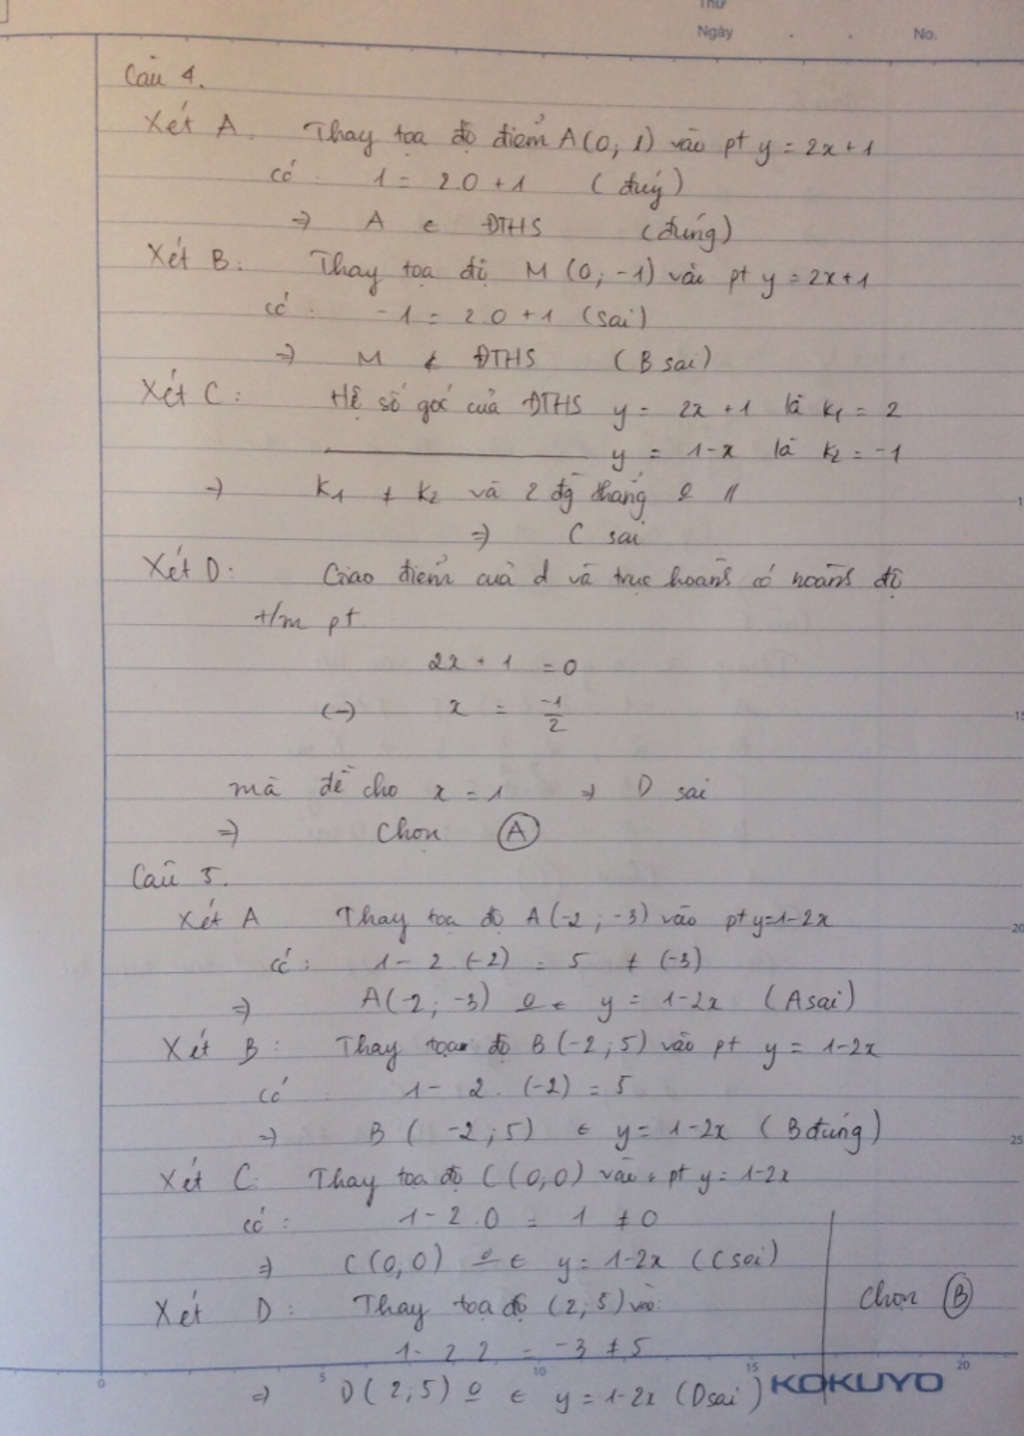 Thứ
Ngày . . No.
Câu 4.
Xét A. Thay tọa độ điểm A(0; 1) vào pt y = 2x+1
có 1 = 2.0 +1 (đúng)
=> A ∈ ĐTHS (đúng)
Xét B: Thay tọa độ M (0; -1) vào pt y = 2x+1
có -1 = 2.0 +1 (sai)
=> M ∉ ĐTHS (B sai)
Xét C: Hệ số góc của ĐTHS y = 2x +1 là k₁ = 2
y = 1-x là k₂ = -1
=> k₁ ≠ k₂ và 2 đg thẳng o̲ //
=> C sai
Xét D. Giao điểm của d và trục hoành có hoành độ
t/m pt
2x + 1 = 0
(->) x = -1/2
mà đề cho x = 1 => D sai
=> Chọn (A)
Câu 5.
Xét A Thay tọa độ A(-2; -3) vào pt y=1-2x
có: 1 - 2.(-2) = 5 ≠ (-3)
=> A(-2; -3) o̲ ∈ y = 1-2x (A sai)
Xét B: Thay tọa độ B(-2; 5) vào pt y = 1-2x
có 1 - 2.(-2) = 5
=> B(-2; 5) ∈ y = 1-2x (B đúng)
Xét C: Thay tọa độ C(0,0) vào pt y = 1-2x
có: 1-2.0 = 1 ≠ 0
=> C(0,0) o̲ ∈ y = 1-2x (C sai)
Xét D: Thay tọa độ (2; 5) vào:
1- 2.2 = -3 ≠ 5
=> D(2; 5) o̲ ∈ y = 1-2x (D sai)
Chọn (B)
KOKUYO